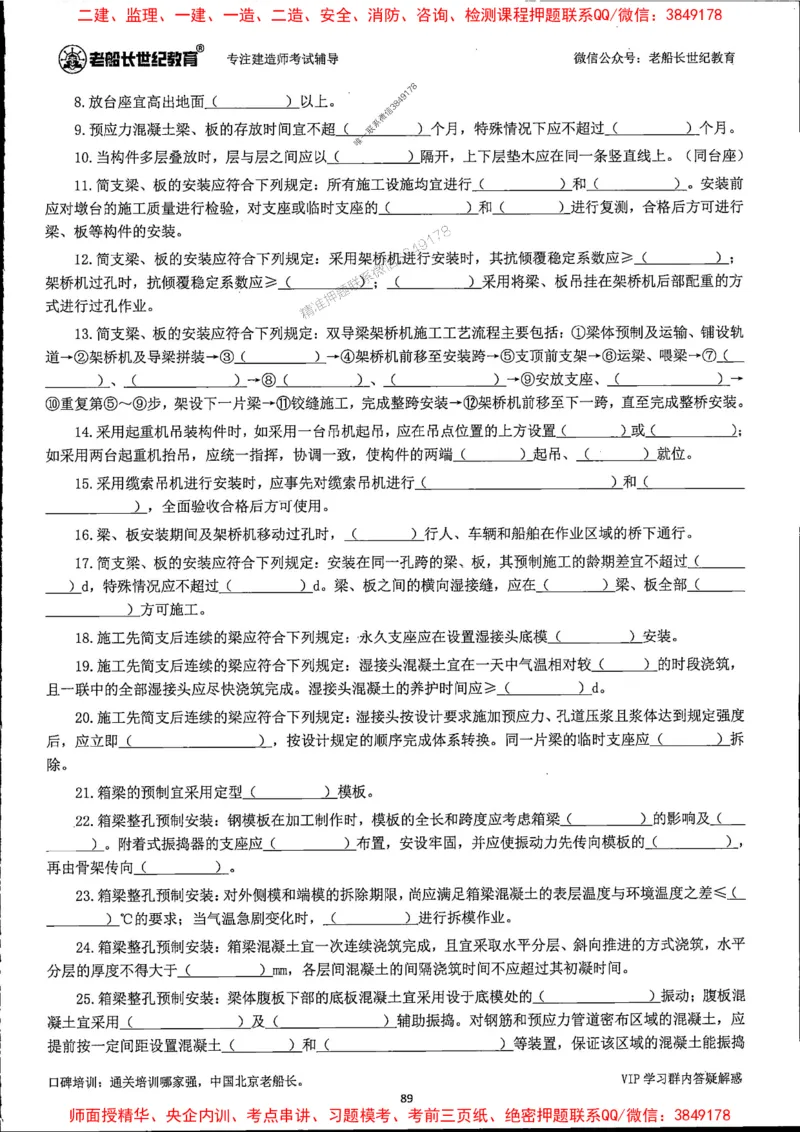 二建、监理、一建、一造、二造、安全、消防、咨询、检测课程押题联系QQ/微信：3849178
老船长世纪教育® 专注建造师考试辅导 微信公众号：老船长世纪教育
8.放台座宜高出地面（　　　）以上。
唯一联系微信3849178
9.预应力混凝土梁、板的存放时间宜不超（　　　）个月，特殊情况下应不超过（　　　）个月。
10.当构件多层叠放时，层与层之间应以（　　　）隔开，上下层垫木应在同一条竖直线上。（同台座）
11.简支梁、板的安装应符合下列规定：所有施工设施均宜进行（　　　）和（　　　）。安装前
应对墩台的施工质量进行检验，对支座或临时支座的（　　　）和（　　　）进行复测，合格后方可进行
梁、板等构件的安装。
12.简支梁、板的安装应符合下列规定：采用架桥机进行安装时，其抗倾覆稳定系数应≥（　　　）；
架桥机过孔时，抗倾覆稳定系数应≥（　　　）；（　　　）采用将梁、板吊挂在架桥机后部配重的方
式进行过孔作业。
精准押题联系微信3849178
13.简支梁、板的安装应符合下列规定：双导梁架桥机施工工艺流程主要包括：①梁体预制及运输、铺设轨
道→②架桥机及导梁拼装→③（　　　）→④架桥机前移至安装跨→⑤支顶前支架→⑥运梁、喂梁→⑦（
　　　）、（　　　）→⑧（　　　）、（　　　）→⑨安放支座、（　　　）→
⑩重复第⑤～⑨步，架设下一片梁→⑪铰缝施工，完成整跨安装→⑫架桥机前移至下一跨，直至完成整桥安装。
14.采用起重机吊装构件时，如采用一台吊机起吊，应在吊点位置的上方设置（　　　）或（　　　）；
如采用两台起重机抬吊，应统一指挥，协调一致，使构件的两端（　　　）起吊、（　　　）就位。
15.采用缆索吊机进行安装时，应事先对缆索吊机进行（　　　）和（
　　　），全面验收合格后方可使用。
16.梁、板安装期间及架桥机移动过孔时，（　　　）行人、车辆和船舶在作业区域的桥下通行。
17.简支梁、板的安装应符合下列规定：安装在同一孔跨的梁、板，其预制施工的龄期差宜不超过（
　）d，特殊情况应不超过（　　　）d。梁、板之间的横向湿接缝，应在（　　　）梁、板全部（
　　　）方可施工。
18.施工先简支后连续的梁应符合下列规定：永久支座应在设置湿接头底模（　　　）安装。
19.施工先简支后连续的梁应符合下列规定：湿接头混凝土宜在一天中气温相对较（　　　）的时段浇筑，
且一联中的全部湿接头应尽快浇筑完成。湿接头混凝土的养护时间应≥（　　　）d。
20.施工先简支后连续的梁应符合下列规定：湿接头按设计要求施加预应力、孔道压浆且浆体达到规定强度
后，应立即（　　　），按设计规定的顺序完成体系转换。同一片梁的临时支座应（　　　）拆
除。
21.箱梁的预制宜采用定型（　　　）模板。
22.箱梁整孔预制安装：钢模板在加工制作时，模板的全长和跨度应考虑箱梁（　　　）的影响及（
　　　）。附着式振捣器的支座应（　　　）布置，安设牢固，并应使振动力先传向模板的（　　　），
再由骨架传向（　　　）。
23.箱梁整孔预制安装：对外侧模和端模的拆除期限，尚应满足箱梁混凝土的表层温度与环境温度之差≤（
　　　）℃的要求；当气温急剧变化时，（　　　）进行拆模作业。
24.箱梁整孔预制安装：箱梁混凝土宜一次连续浇筑完成，且宜采取水平分层、斜向推进的方式浇筑，水平
分层的厚度不得大于（　　　）mm，各层间混凝土的间隔浇筑时间不应超过其初凝时间。
25.箱梁整孔预制安装：梁体腹板下部的底板混凝土宜采用设于底模处的（　　　）振动；腹板混
凝土宜采用（　　　）及（　　　）辅助振捣。对钢筋和预应力管道密布区域的混凝土，应
提前按一定间距设置混凝土（　　　）和（　　　）等装置，保证该区域的混凝土能振捣
口碑培训：通关培训哪家强，中国北京老船长。 VIP学习群内答疑解惑
89
师面授精华、央企内训、考点串讲、习题模考、考前三页纸、绝密押题联系QQ/微信：3849178